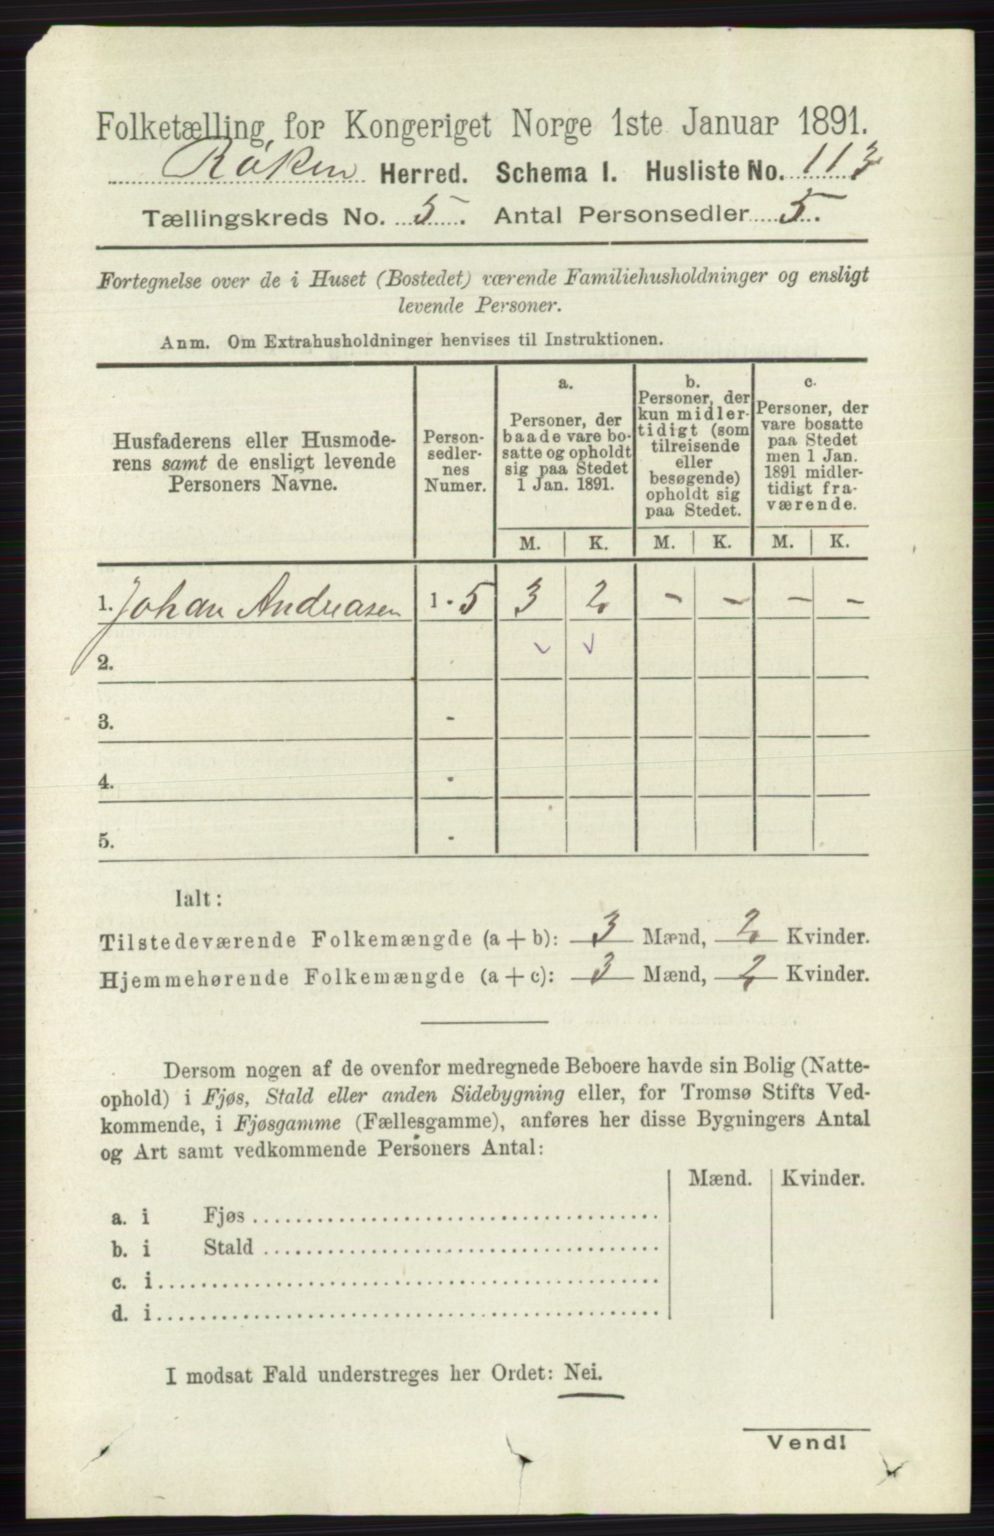 Folketælling for Kongeriget Norge 1ste Januar 1891.
Røken Herred. Schema I. Husliste No. 113
Tællingskreds No. 5. Antal Personsedler 5.
Fortegnelse over de i Huset (Bostedet) værende Familiehusholdninger og ensligt
levende Personer.
Anm. Om Extrahusholdninger henvises til Instruktionen.
Husfaderens eller Husmode-
rens samt de ensligt levende
Personers Navne.
Person-
sedler-
nes
Numer.
a.
Personer, der
baade vare bo-
satte og opholdt
sig paa Stedet
1 Jan. 1891.
b.
Personer, der
kun midler-
tidigt (som
tilreisende
eller
besøgende)
opholdt sig
paa Stedet.
c.
Personer, der
vare bosatte
paa Stedet
men 1 Jan.
1891 midler-
tidigt fra-
værende.
M. K. M. K. M. K.
1. Johan Andreasen 1 - 5 3 2 - - - -
2.
3. -
4. -
5. -
Ialt:
Tilstedeværende Folkemængde (a + b): 3 Mænd, 2 Kvinder.
Hjemmehørende Folkemængde (a + c): 3 Mænd, 2 Kvinder.
Dersom nogen af de ovenfor medregnede Beboere havde sin Bolig (Natte-
ophold) i Fjøs, Stald eller anden Sidebygning eller, for Tromsø Stifts Ved-
kommende, i Fjøsgamme (Fællesgamme), anføres her disse Bygningers Antal
og Art samt vedkommende Personers Antal:
Mænd. Kvinder.
a. i Fjøs
b. i Stald
c. i
d. i
I modsat Fald understreges her Ordet: Nei.
Vend!